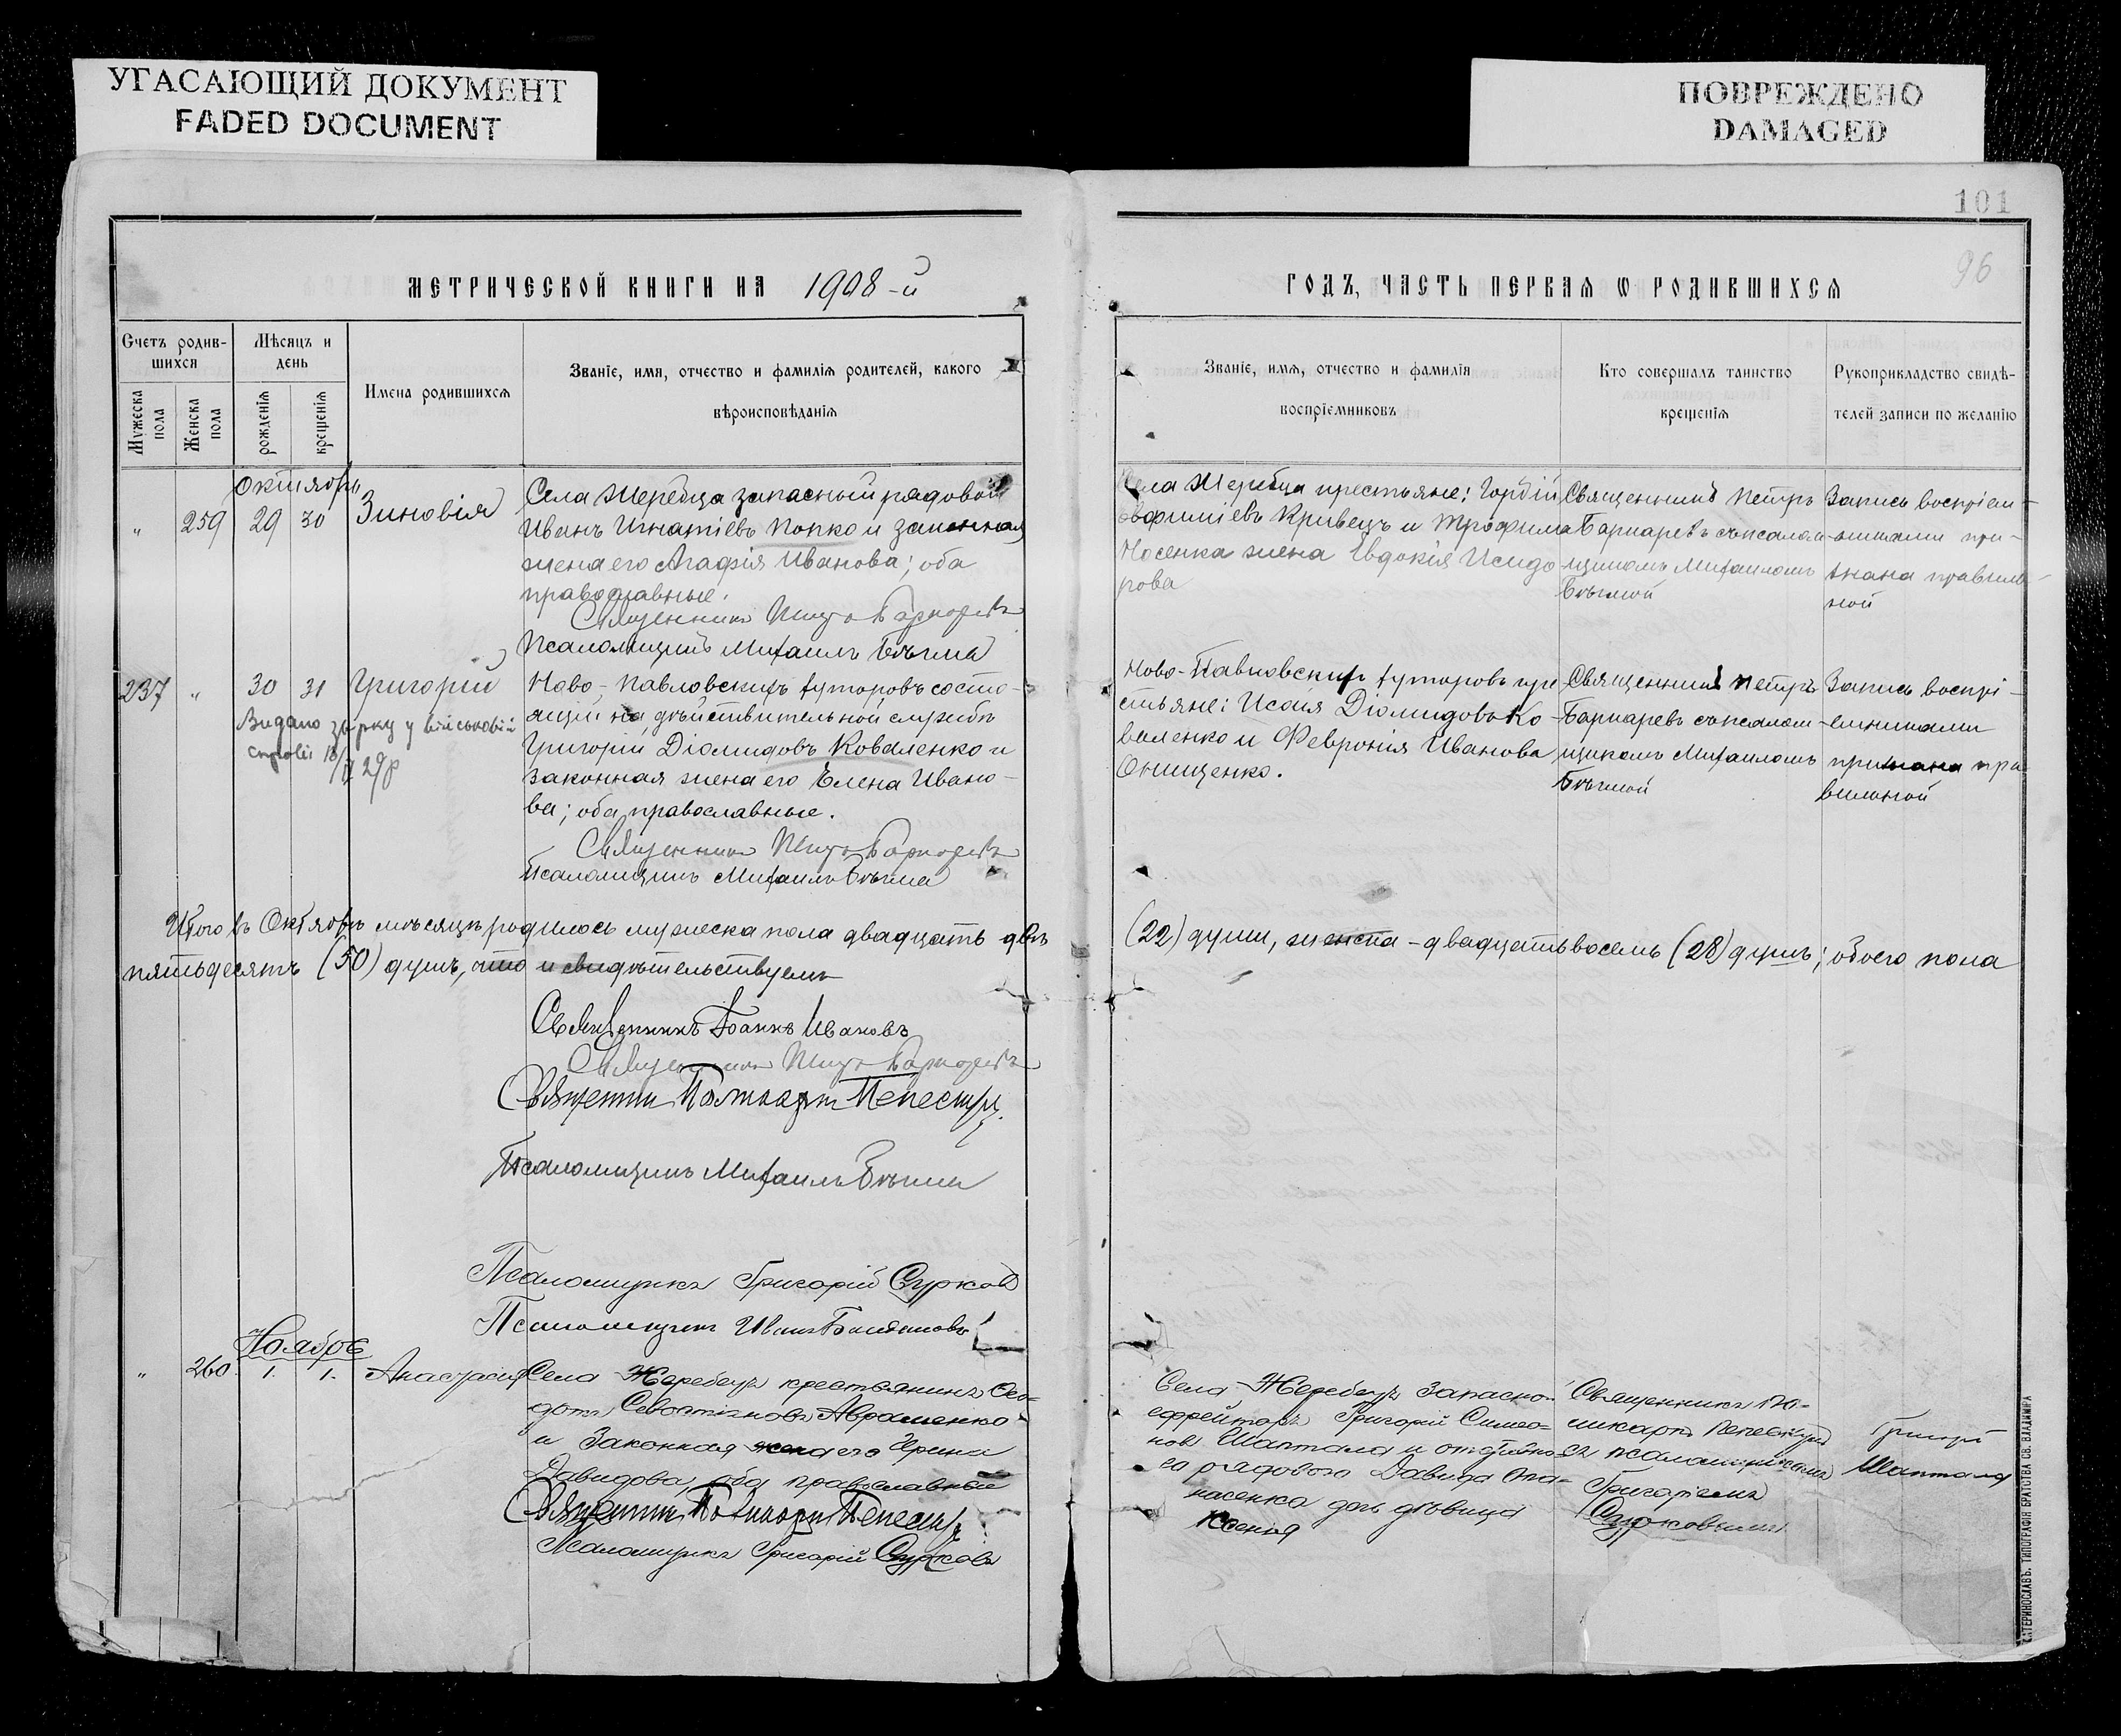 УГАСАЮЩИЙ ДОКУМЕНТ
FADED DOCUMENT
ПОВРЕЖДЕНО
DAMAGED
101
96
МЕТРИЧЕСКОЙ КНИГИ НА 1908-й
ГОДЪ, ЧАСТЬ ПЕРВАЯ Ѡ РОДИВШИХСЯ
Счетъ родив-
шихся
Мужеска пола
Женска пола
Мѣсяцъ и
день
рожденія
крещенія
Имена родившихся
Званіе, имя, отчество и фамилія родителей, какого
вѣроисповѣданія
Званіе, имя, отчество и фамилія
воспріемниковъ
Кто совершалъ таинство
крещенія
Рукоприкладство свидѣ-
телей записи по желанію
Октября
" 259 29 30 Зиновія
Села Жеребца запасный рядовой
Иванъ Игнатіевъ Попко и законная
жена его Агафія Иванова; оба
православные.
Священникъ Петръ
Псаломщикъ Михаилъ
Села Жеребца крестьяне: Гордій
Кривецъ и Трофима
Носенка жена Евдокія Исидо-
рова
Священникъ Петръ
съ псалом-
щикомъ Михаиломъ
Запись воспріем-
никами при-
знана правиль-
ной
237 " 30 31 Григорій
Видано у
18/ 29р
Ново-Павловскихъ хуторовъ состо-
ящій на дѣйствительной службѣ
Григорій Діомидовъ Коваленко и
законная жена его Елена Ивано-
ва; оба православные.
Священникъ Петръ
Псаломщикъ Михаилъ
Ново-Павловскихъ хуторовъ кре-
стьяне: Исаія Діомидовъ Ко-
валенко и Февронія Иванова
Онищенко.
Священникъ Петръ
съ псалом-
щикомъ Михаиломъ
Запись воспрі-
емниками
признана пра-
вильной
Итого въ Октябрѣ мѣсяцѣ родилось мужеска пола двадцать двѣ
(22) души, женска - двадцать восемь (28) душъ; обоего пола
пятьдесятъ (50) душъ, что и свидѣтельствуемъ
Священникъ Іоаннъ Ивановъ
Священникъ Петръ
Священникъ Поликарпъ
Псаломщикъ Михаилъ
Псаломщикъ Григорій Сурковъ
Псаломщикъ Иванъ
Ноябрь
" 260 1. 1. Анастасія
Села Жеребецъ крестьянинъ Ѳео-
дотъ Севастіановъ Авраменко
и законная жена его Ирина
Давидова, оба православные
Священникъ Поликарпъ
Псаломщикъ Григорій Сурковъ
Села Жеребецъ запасной
ефрейторъ Григорій Симео-
новъ Шаптала и отставно-
го рядового Давида Опа-
насенка дочь дѣвица
Ксенія
Священникъ По-
ликарпъ
съ псаломщикомъ
Григоріемъ
Сурковымъ
Григорій
Шаптала
ЕКАТЕРИНОСЛАВЪ. ТИПОГРАФІЯ БРАТСТВА СВ. ВЛАДИМІРА